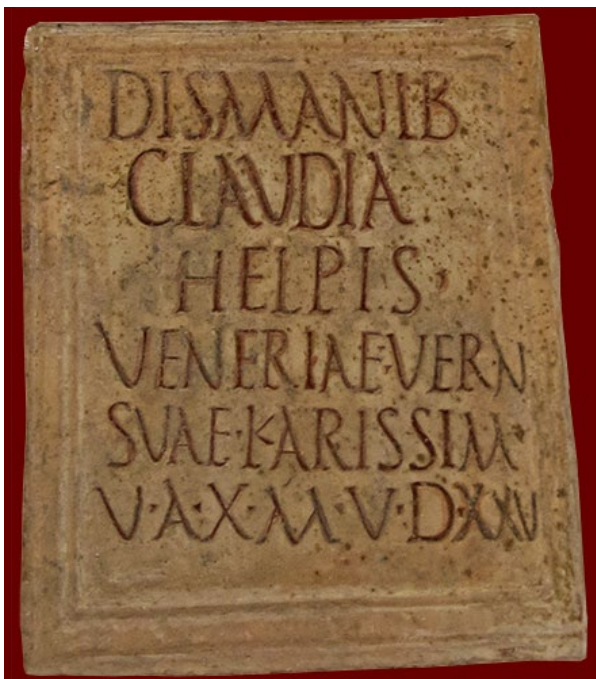 DISMANIB
CLAUDIA
HELPIS
VENERIAE·VERN
SVAE·KARISSIM
V·A·X·M·V·D·XXV